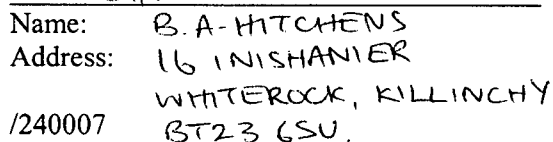 Name: B. A-HITCHENS
Address: 16 INISHANIER
WHITEROCK, KILLINCHY
/240007 BT23 6SU.